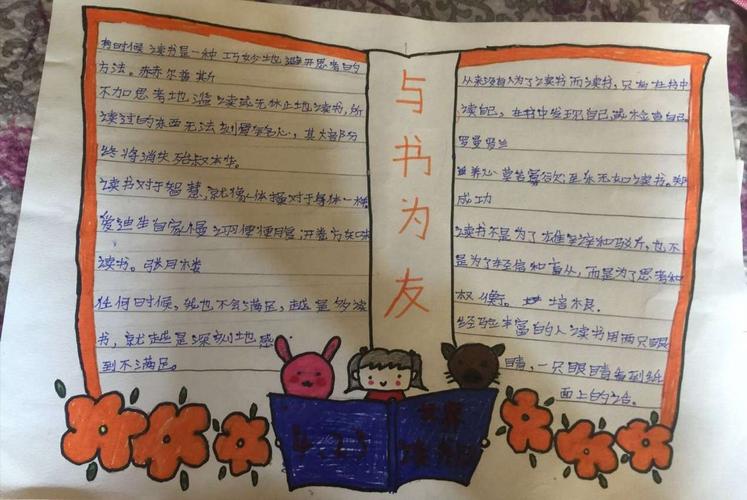 有时候读书是一种巧妙地避开思考的
方法。赫尔普斯
不加思考地滥读或无休止地读书,所
读过的东西无法刻骨铭心,其大部分
终将消失殆尽。叔本华。
读书对于智慧,就像体操对于身体一样
爱迪生自家慢羽便便睡,开卷方知味
读书。
任何时候,我也不会满足,越是多读
书,就越是深刻地感
到不满足。
与书为友
从来没有人为了读书而读书,只有在书中
读自己,在书中发现自己或检查自己
罗曼罗兰
养心莫若寡欲至乐无如读书。郑
成功
读书不是为了雄辩和驳斥,也不
是为了轻信和盲从,而是为了思考和
权衡。培根。
经验丰富的人读书用两只眼
睛,一只眼睛看到纸
面上的话。
4.23
世界
读书日